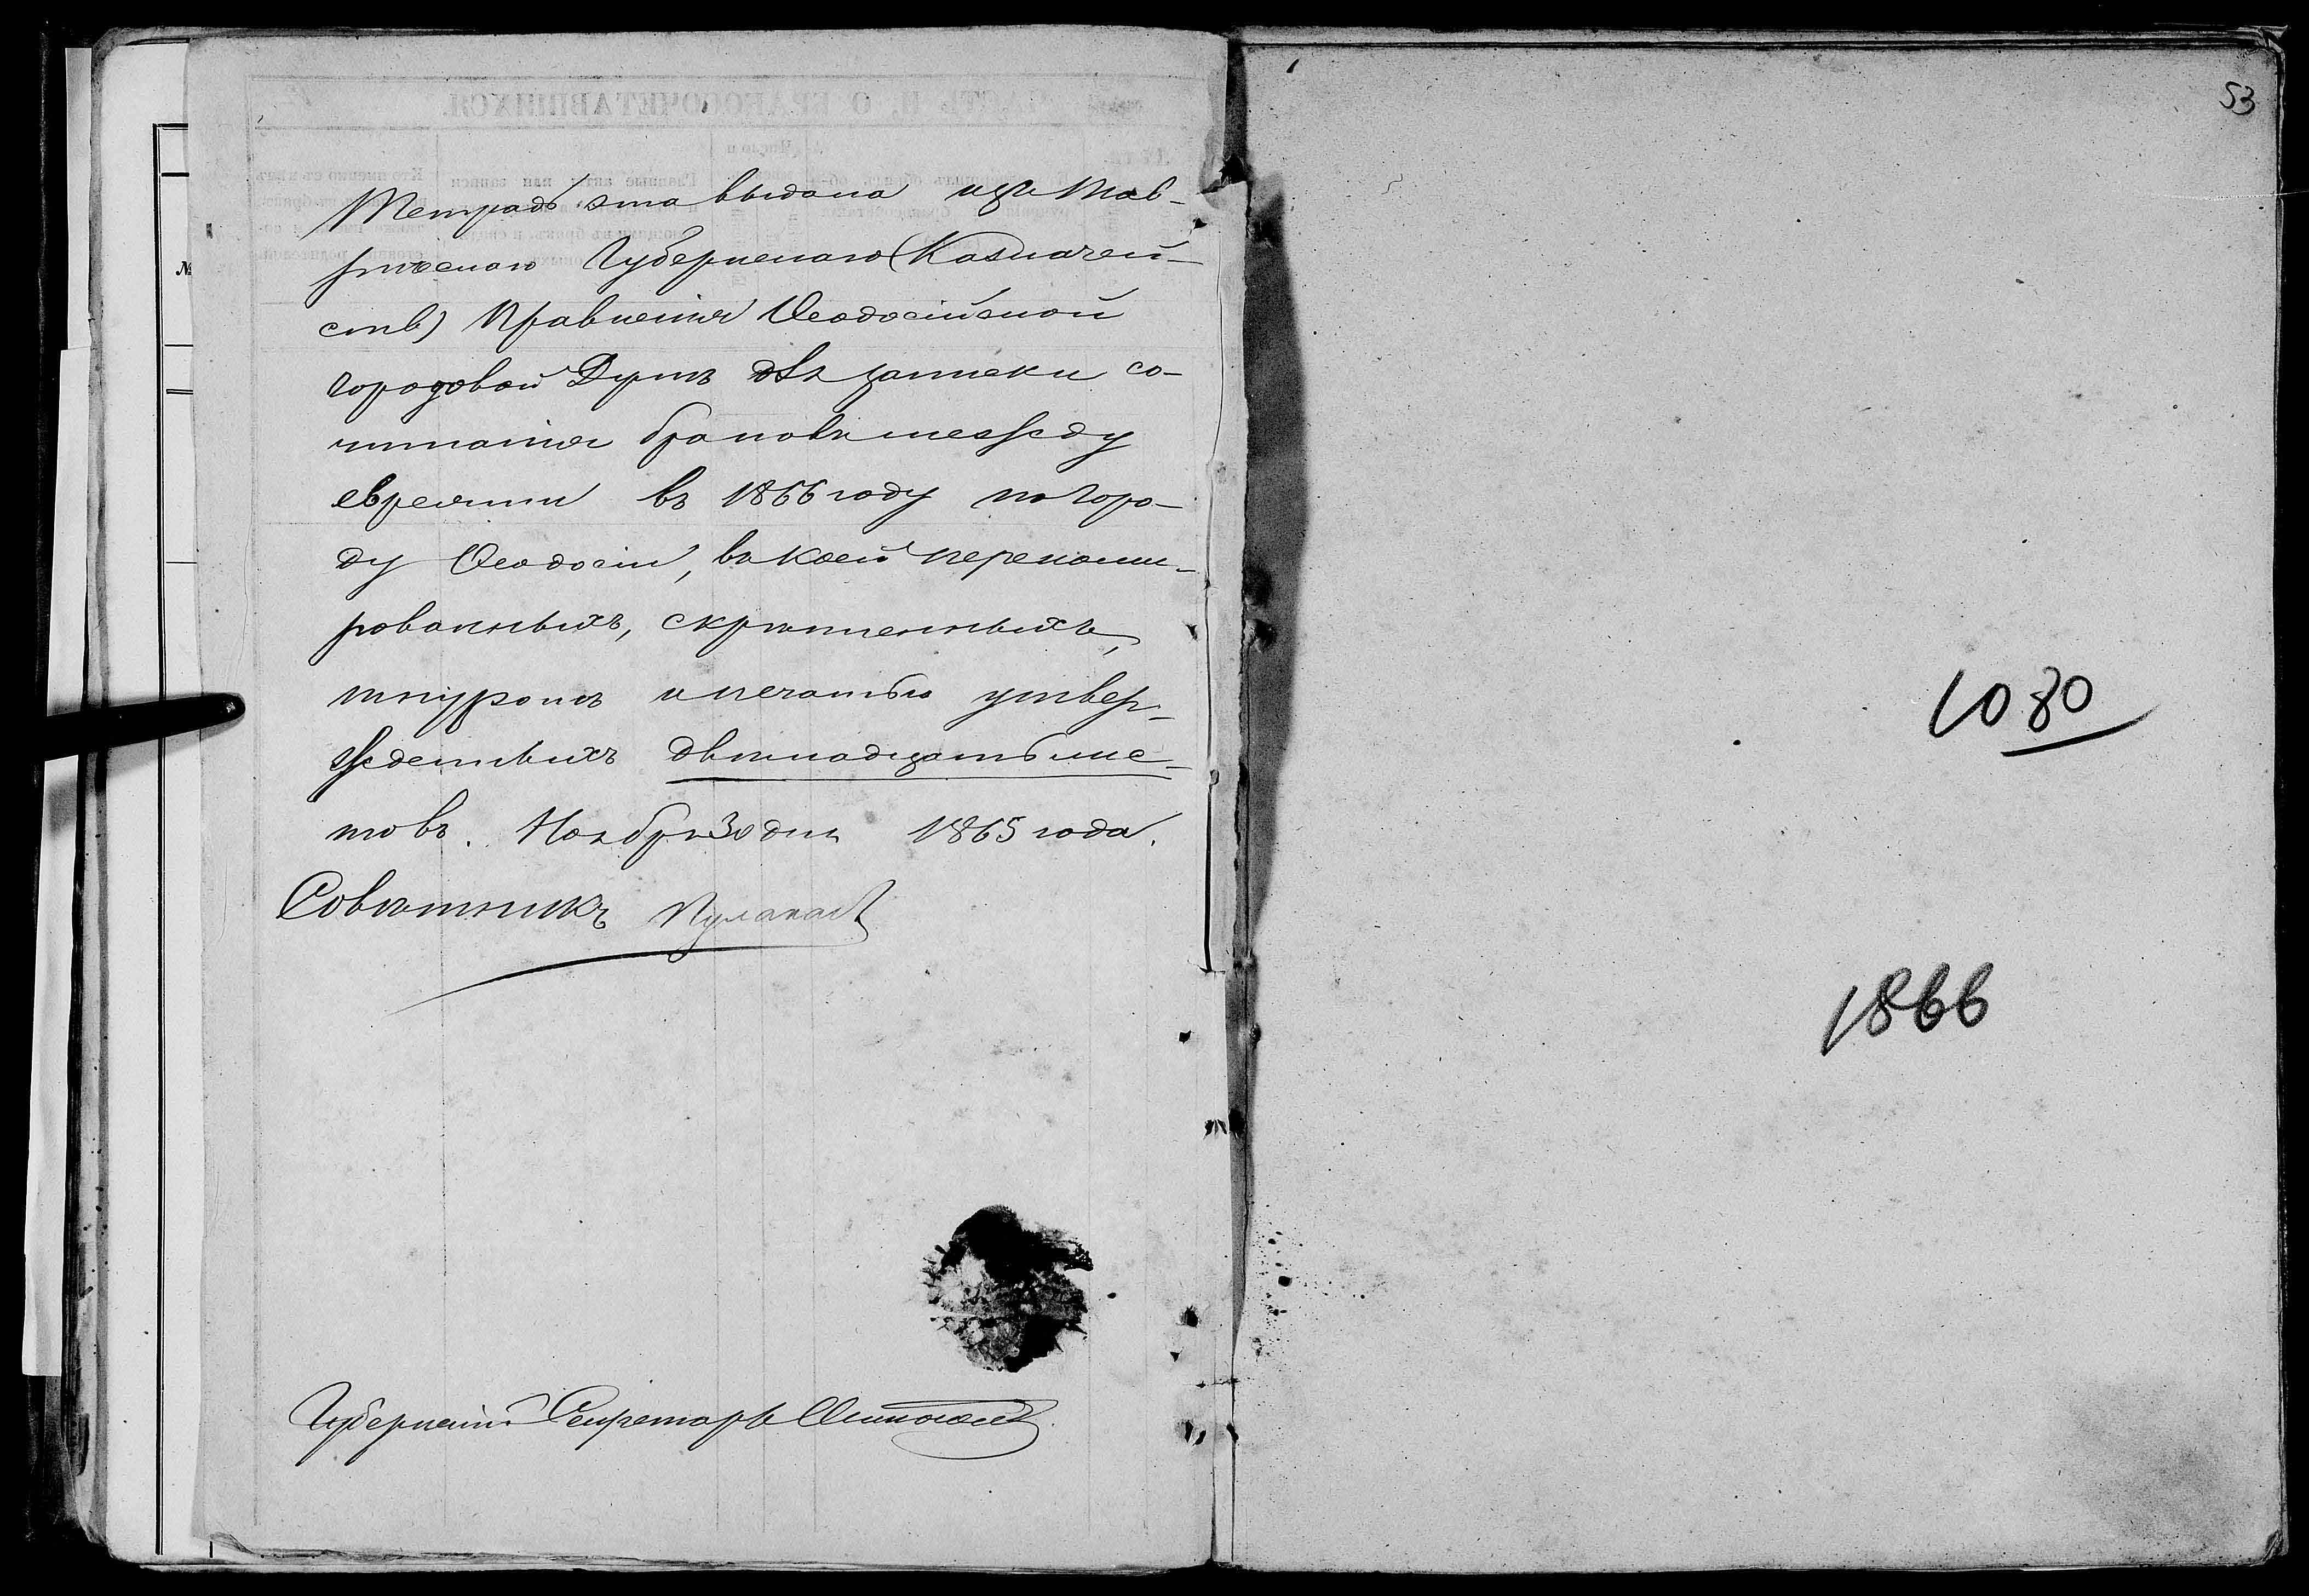 53
Тетрадь эта выдана изъ Тав-
рическаго Губернскаго (Казначей-
ств) Правленія Ѳеодосійской
городовой Думѣ для записки со-
читанія браковъ между
евреями въ 1866 году по горо-
ду Ѳеодосіи, въ коей перенуме-
рованныхъ, скрѣпленныхъ,
шнуромъ и печатью утвер-
жденныхъ двѣнадцать лис-
товъ. Ноября 30 дня 1865 года.
Совѣтникъ
Губернскій Секретарь
1080
1866